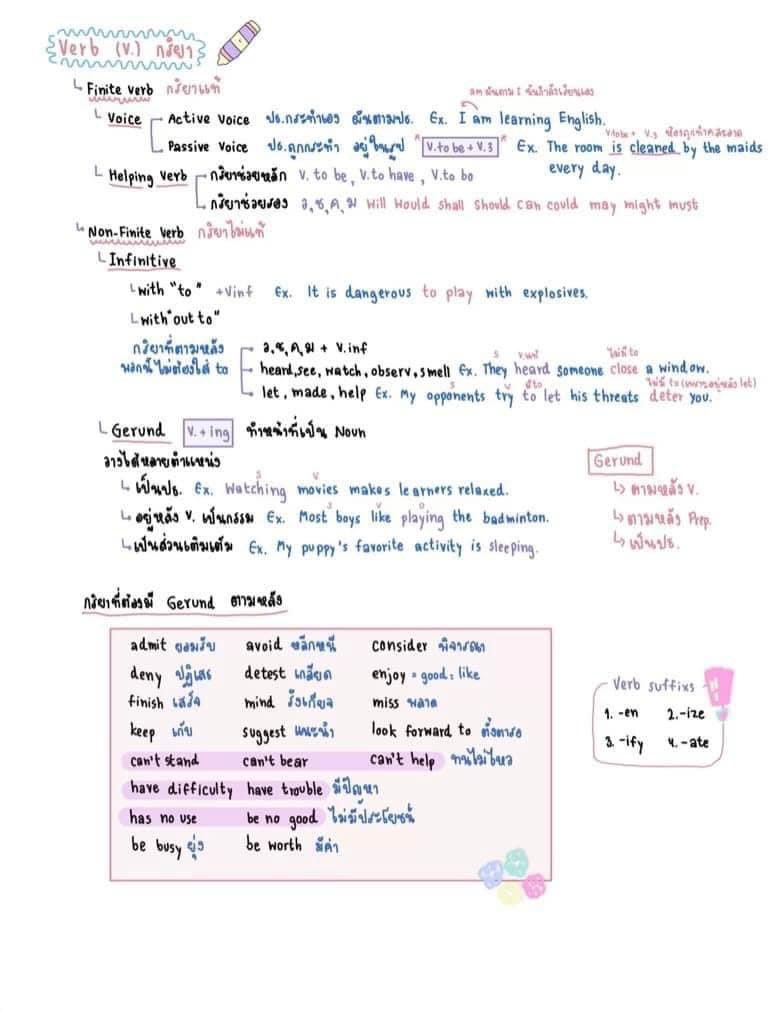 Verb (V.) กริยา
Finite verb กริยาแท้
am ผันตาม I ฉันกำลังเรียนเอง
Voice Active Voice ปธ.กระทำเอง ผันตามปธ. Ex. I am learning English.
V.tobe + V.3 ห้องถูกทำความสะอาด
Passive Voice ปธ.ถูกกระทำ อยู่ในรูป "V.to be + V.3" Ex. The room is cleaned by the maids
every day.
Helping verb กริยาช่วยหลัก V. to be, V.to have, V.to bo
กริยาช่วยรอง ว,ช,ค,ม will would shall should can could may might must
Non-Finite verb กริยาไม่แท้
Infinitive
with "to" +Vinf Ex. It is dangerous to play with explosives.
with"out to"
กริยาที่ตามหลัง
พวกนี้ไม่ต้องใส่ to
ว,ช,ค,ม + V.inf
S V.แท้ ไม่มี to
heard,see, watch, observ, smell Ex. They heard someone close a window.
S V มี to ไม่มี to (เพราะอยู่หลัง let)
let, made, help Ex. My opponents try to let his threats deter you.
Gerund V.+ing ทำหน้าที่เป็น Noun
วางได้หลายตำแหน่ง
S V
เป็นปธ. Ex. Watching movies makes learners relaxed.
S V O
อยู่หลัง V. เป็นกรรม Ex. Most boys like playing the badminton.
เป็นส่วนเติมเต็ม Ex. My puppy's favorite activity is sleeping.
Gerund
ตามหลัง V.
ตามหลัง Prep.
เป็นปธ.
กริยาที่ต้องมี Gerund ตามหลัง
admit ยอมรับ avoid หลีกหนี consider พิจารณา
deny ปฏิเสธ detest เกลียด enjoy = good = like
finish เสร็จ mind รังเกียจ miss พลาด
keep เก็บ suggest แนะนำ look forward to ตั้งตารอ
can't stand can't bear can't help ทนไม่ไหว
have difficulty have trouble มีปัญหา
has no use be no good ไม่มีประโยชน์
be busy ยุ่ง be worth มีค่า
Verb suffixs
1. -en 2.-ize
3. -ify 4. -ate